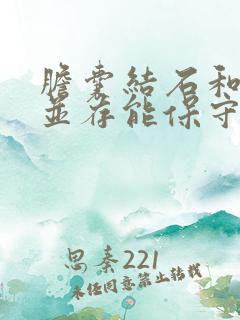 膽囊結石和
並存能保守
思秦221
未經同意禁止轉載